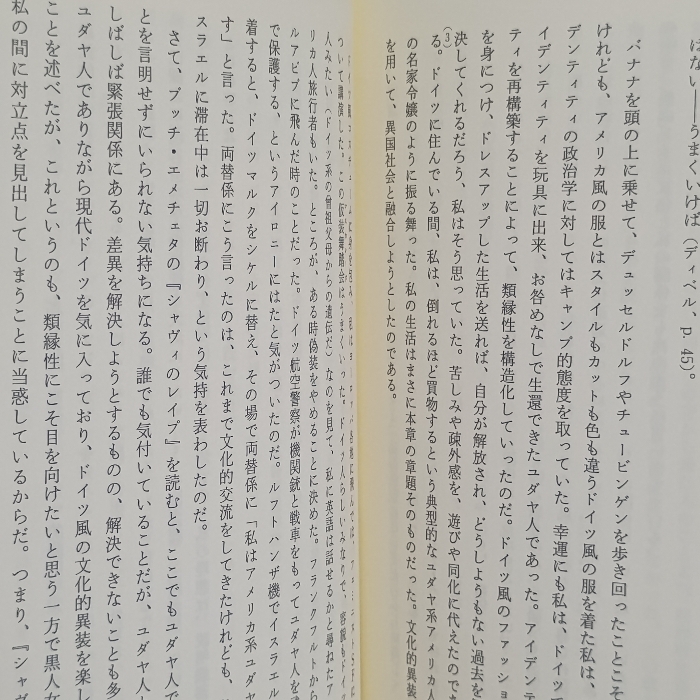 はない――うまくいけば（ディベル、p. 45)。
バナナを頭の上に乗せて、デュッセルドルフやチュービンゲンを歩き回ったことこそ
けれども、アメリカ風の服とはスタイルもカットも色も違うドイツ風の服を着た私は、
デンティティの政治学に対してはキャンプ的態度を取っていた。幸運にも私は、ドイツ
イデンティティを玩具に出来、お咎めなしで生還できたユダヤ人であった。アイデンテ
ティを再構築することによって、類縁性を構造化していったのだ。ドイツ風のファッショ
を身につけ、ドレスアップした生活を送れば、自分が解放され、どうしようもない過去を
決してくれるだろう、私はそう思っていた。苦しみや疎外感を、遊びや同化に代えたのであ
(3)
る。ドイツに住んでいる間、私は、倒れるほど買物するという典型的なユダヤ系アメリカ人
の名家令嬢のように振る舞った。私の生活はまさに本章の章題そのものだった。文化的異装
を用いて、異国社会と融合しようとしたのである。
ついて講演した。この仮装舞踏会はうまくいった。ドイツ人らしいみなりで、容貌もドイツ
人みたい（ドイツ系の曾祖父母からの遺伝だ）なのを見て、私に英語は話せるかと尋ねたア
リカ人旅行者もいた。ところが、ある時偽装をやめることに決めた。フランクフルトから
ルアビブに飛んだ時のことだった。ドイツ航空警察が機関銃と戦車をもってユダヤ人を
で保護する、というアイロニーにはたと気がついたのだ。ルフトハンザ機でイスラエル
着すると、ドイツマルクをシケルに替え、その場で両替係に「私はアメリカ系ユダヤ
す」と言った。両替係にこう言ったのは、これまで文化的交流をしてきたけれども、
スラエルに滞在中は一切お断わり、という気持を表わしたのだ。
さて、ブッチ・エメチェタの『シャヴィのレイプ』を読むと、ここでもユダヤ人で
とを言明せずにいられない気持ちになる。誰でも気付いていることだが、ユダヤ人と
しばしば緊張関係にある。差異を解決しようとするものの、解決できないことも多
ユダヤ人でありながら現代ドイツを気に入っており、ドイツ風の文化的異装を楽し
ことを述べたが、これというのも、類縁性にこそ目を向けたいと思う一方で黒人女
私の間に対立点を見出してしまうことに当惑しているからだ。つまり、『シャヴ